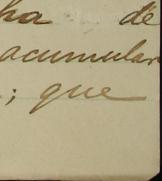 ha de
acumular
; que